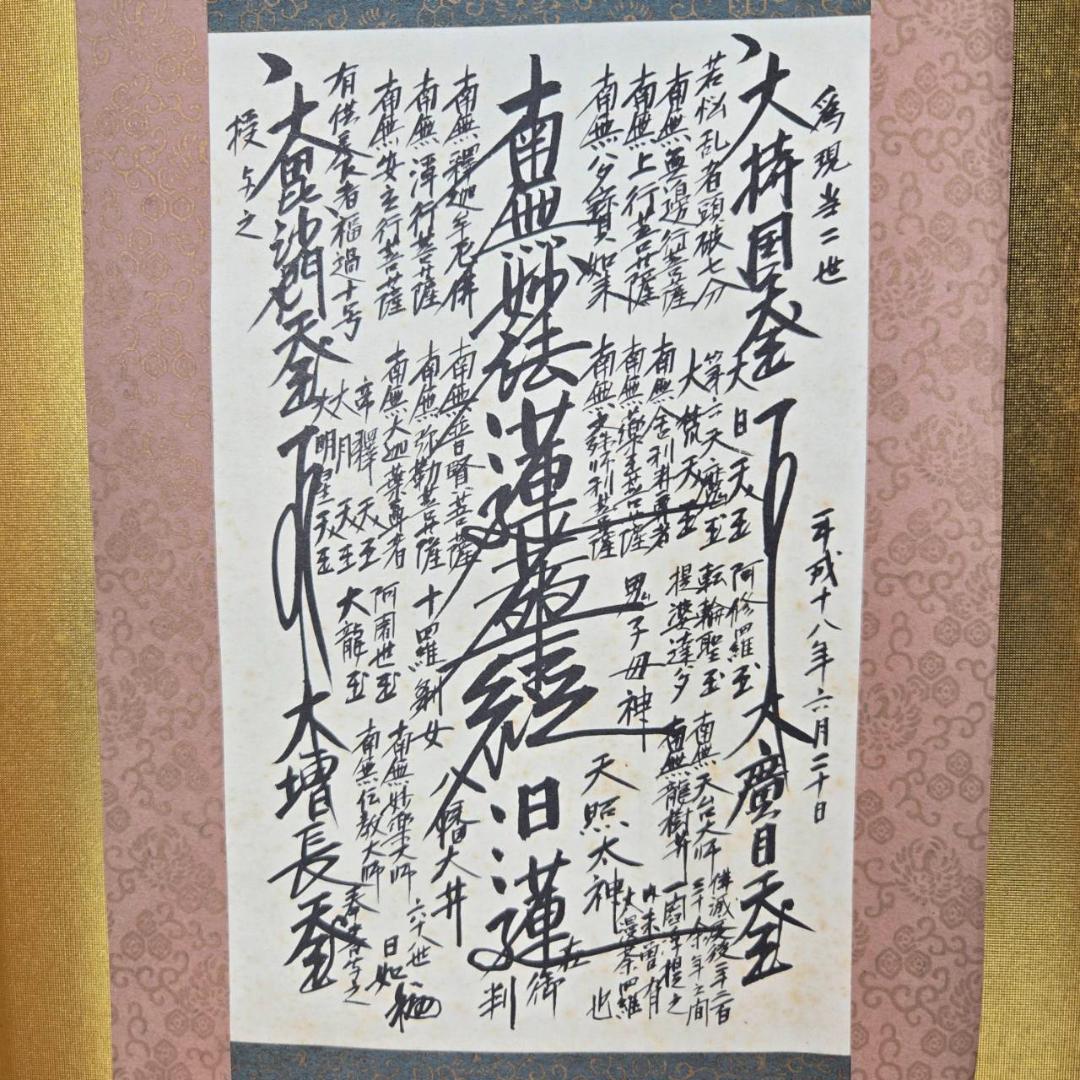 為現当二世
平成十八年六月二十日
大持国天王
大廣目天王
若悩乱者頭破七分
南無無邊行菩薩
南無上行菩薩
南無多寳如来
南無妙法蓮華經
日蓮
在御判
南無釋迦牟尼佛
南無浄行菩薩
南無安立行菩薩
有供養者福過十号
大毘沙門天王
大増長天王
授与之
大日天王
第六天魔王
大梵天王
南無舎利弗尊者
南無薬王菩薩
南無文殊師利菩薩
南無普賢菩薩
南無弥勒菩薩
南無大迦葉尊者
帝釋天王
大月天王
大明星天王
阿修羅王
転輪聖王
提婆達多
鬼子母神
十羅刹女
阿闍世王
大龍王
南無天台大師
南無龍樹井
天照太神
八幡大井
南無妙楽大師
南無伝教大師
佛滅度後二千二百
三十余年之間
一閻浮提之
内未曽有
大曼荼羅
也
六十八世
日如
奉書写之